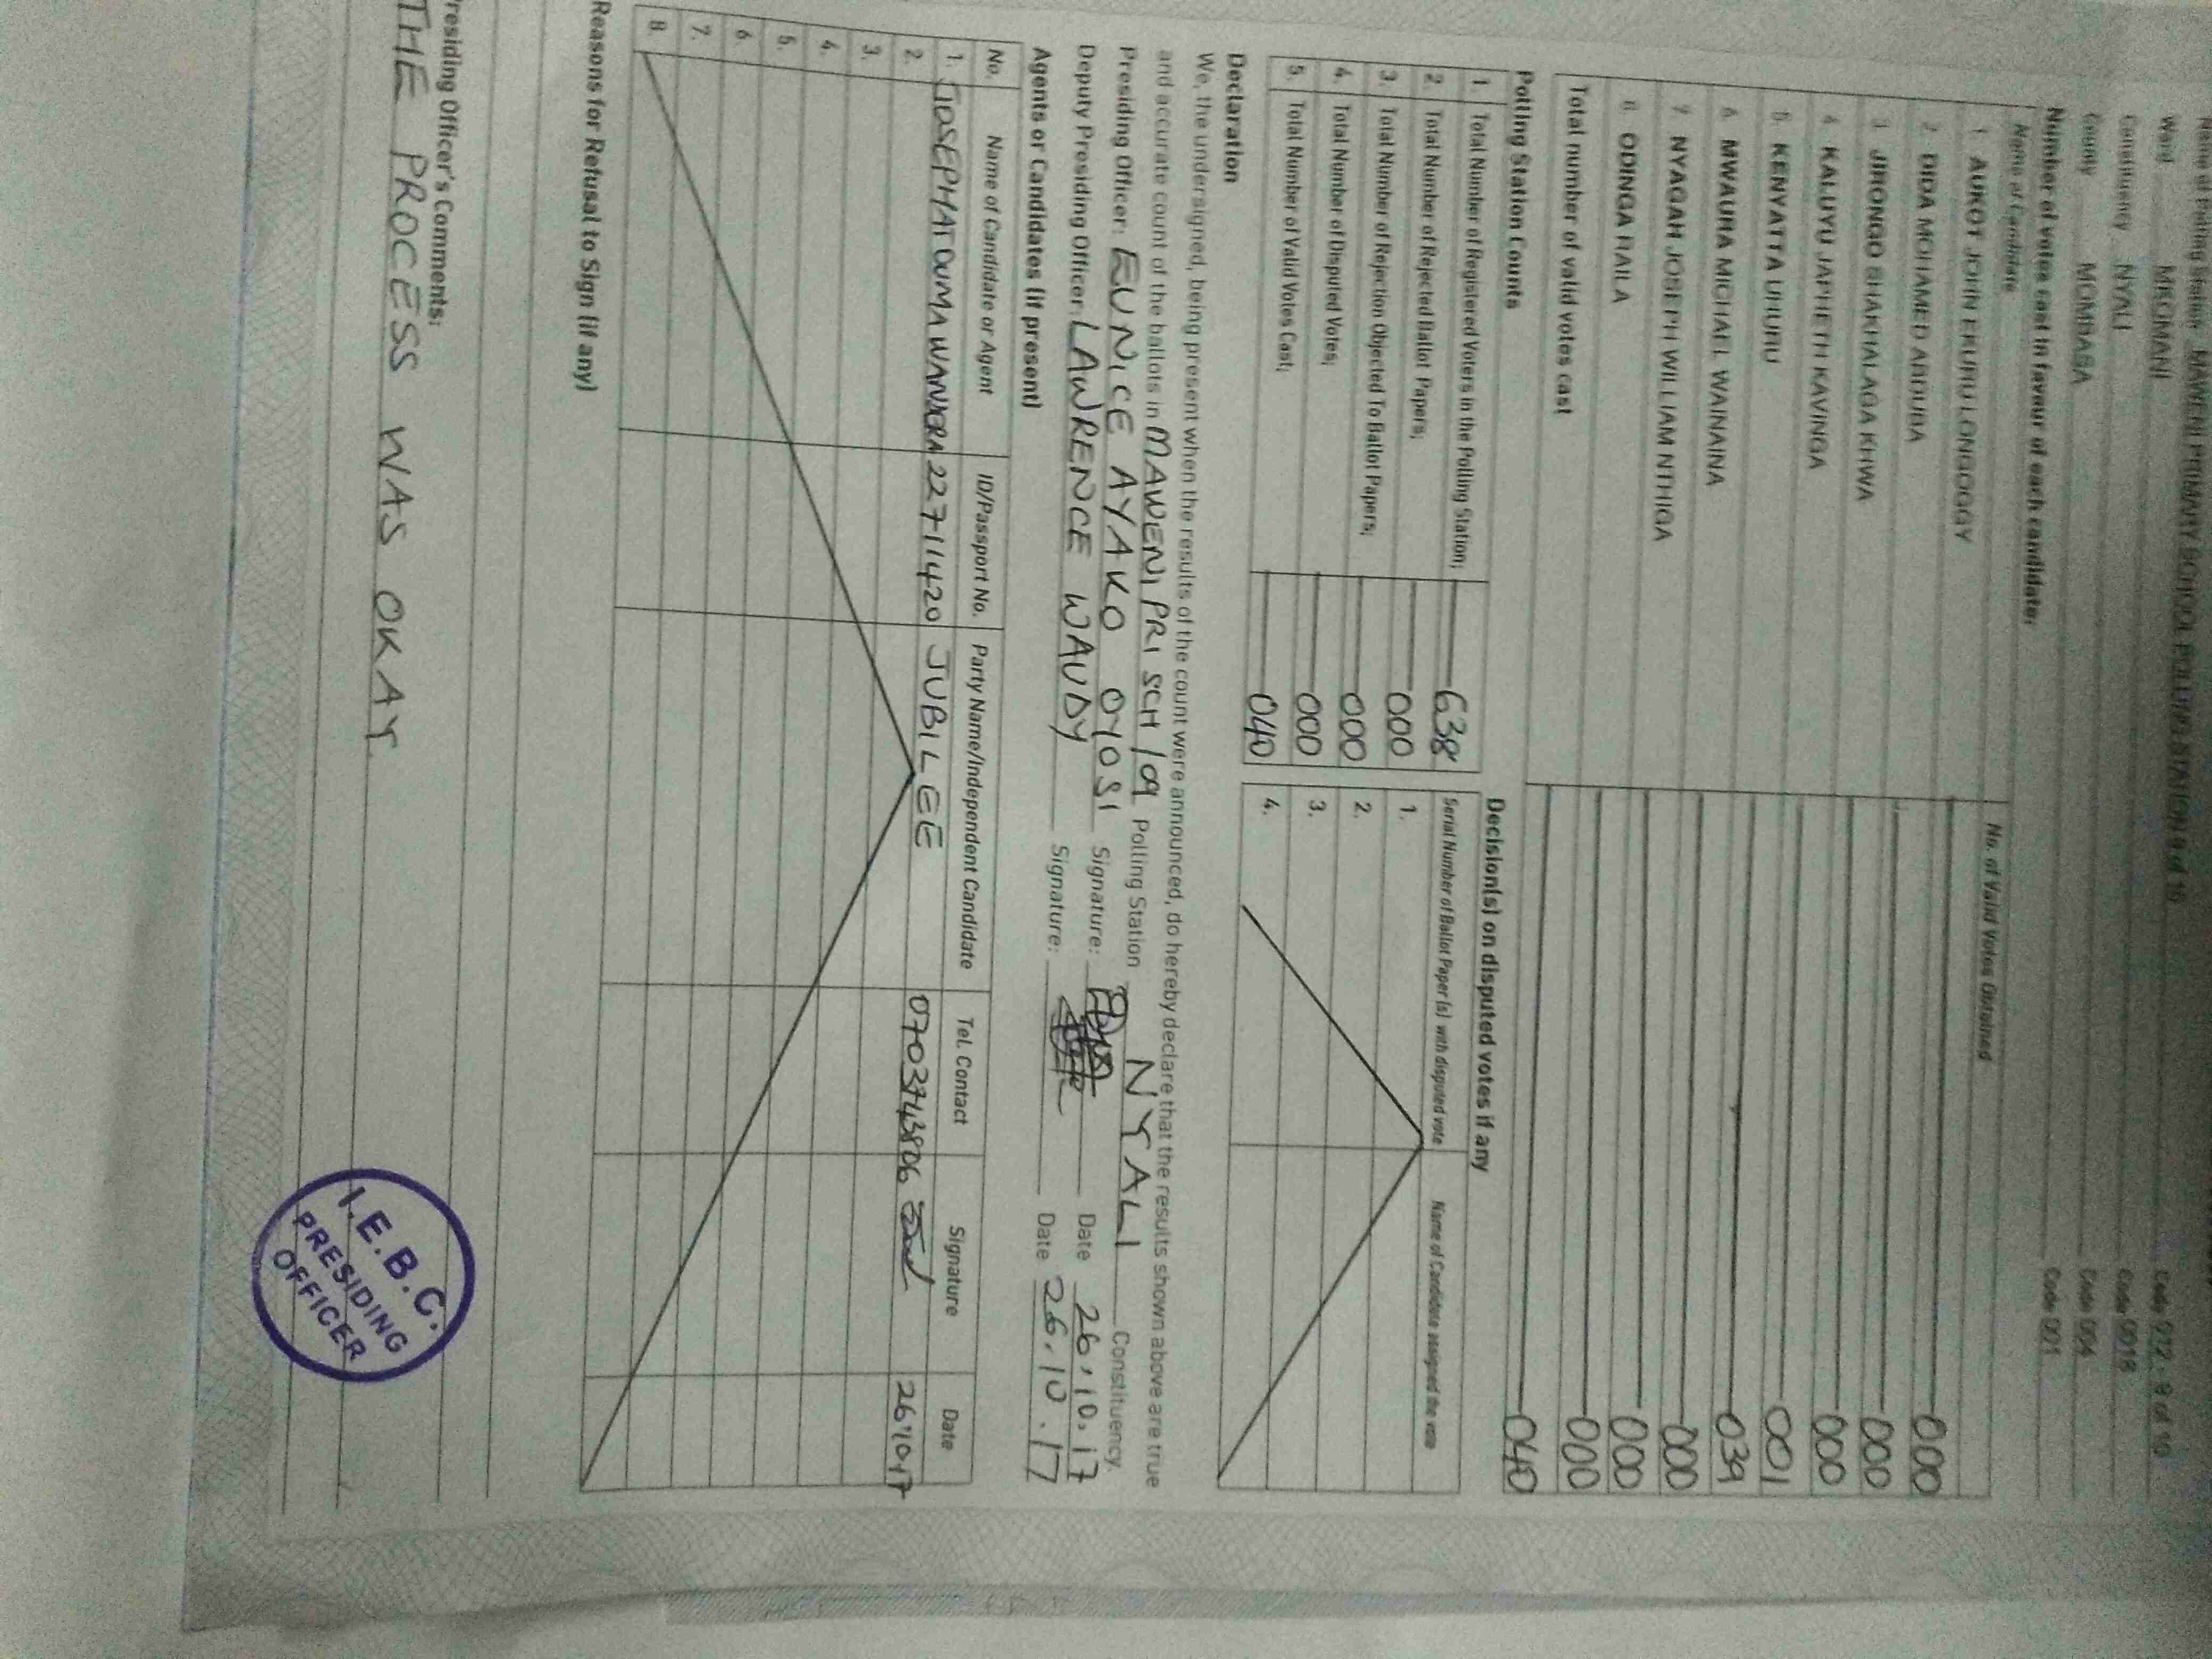 Name of Polling Station MAWENI PRIMARY SCHOOL POLLING STATION 9 of 10
Ward MKOMANI Code 072 - 9 of 10
Constituency NYALI Code 0018
County MOMBASA Code 004
Code 001
Number of votes cast in favour of each candidate:
Name of Candidate No. of Valid Votes Obtained
1 AUKOT JOHN EKURU LONGOGGY 000
2 DIDA MOHAMED ABDUBA 000
3 JIRONGO SHAKHALAGA KHWA 000
4 KALUYU JAPHETH KAVINGA 001
5 KENYATTA UHURU 039
6 MWAURA MICHAEL WAINAINA 000
7 NYAGAH JOSEPH WILLIAM NTHIGA 000
8 ODINGA RAILA 000
Total number of valid votes cast 040
Polling Station Counts
1 Total Number of Registered Voters in the Polling Station; 638
2. Total Number of Rejected Ballot Papers; 000
3. Total Number of Rejection Objected To Ballot Papers; 000
4. Total Number of Disputed Votes; 000
5. Total Number of Valid Votes Cast; 040
Decision(s) on disputed votes if any
Serial Number of Ballot Paper (s) with disputed vote Name of Candidate assigned the vote
1.
2.
3.
4.
Declaration
We, the undersigned, being present when the results of the count were announced, do hereby declare that the results shown above are true
and accurate count of the ballots in MAWENI PRI SCH /09 Polling Station NYALI Constituency.
Presiding Officer: EUNICE AYAKO OYOSI Signature: Date 26.10.17
Deputy Presiding Officer: LAWRENCE WAUDY Signature: Date 26.10.17
Agents or Candidates (if present)
No. Name of Candidate or Agent ID/Passport No. Party Name/Independent Candidate Tel. Contact Signature Date
1. JOSEPHAT OUMA WANJORA 22711420 JUBILEE 0703743806 26.10.17
2.
3.
4.
5.
6.
7.
8.
Reasons for Refusal to Sign (if any)
Presiding Officer's Comments:
THE PROCESS WAS OKAY.
I.E.B.C.
PRESIDING
OFFICER